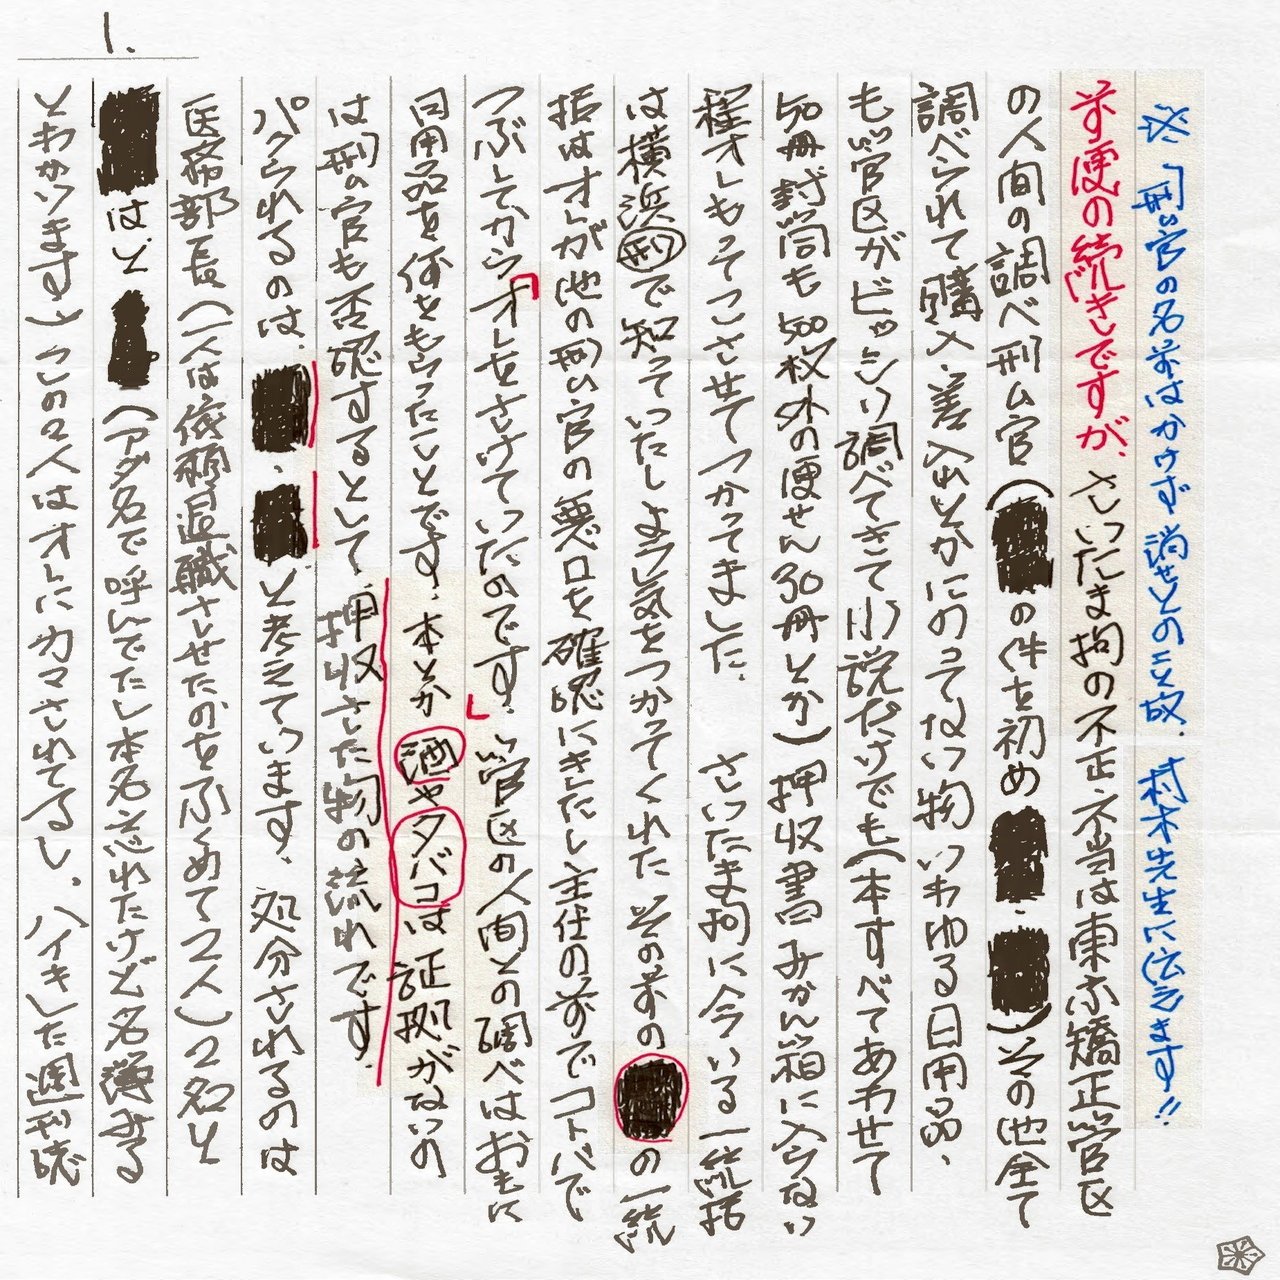 1.
※刑ム官の名前はかけず消せとのこと故、村木先生に伝えます!!
前便の続きですが、さいたま拘の不正・不当は東京矯正管区
の人間の調べ刑ム官(の件を初め・)その他全て
調べられて購入・差入出とかにのってない物いわゆる日用品、
も管区がビッシリ調べてきて小説だけでも(本すべてあわせて
50冊封筒も500枚外の便せん30冊とか)押収書みかん箱に入らない
程オレもってこさせてつかってました。さいたま拘に今いる一統括
は横浜刑で知っていたしよう気をつかってくれたその前のの一統
括はオレが他の刑ム官の悪口を確認にきたし主任の前でコトバで
つぶしてから「オレをさけていたのです。」管区の人間との調べはおもに
日用品を何をもらったことです。本とか酒やタバコは証拠がないの
は刑ム官も否認するとして、押収された物の流れです。
パクられるのは、・と考えています。処分されるのは
医務部長(一人は依願退職させたのをふくめて2人)2名と
はと(アダ名で呼んでたし本名忘れたけど名簿みる
とわかります)この2人はオレにカマされてるし、ハイキした週刊誌